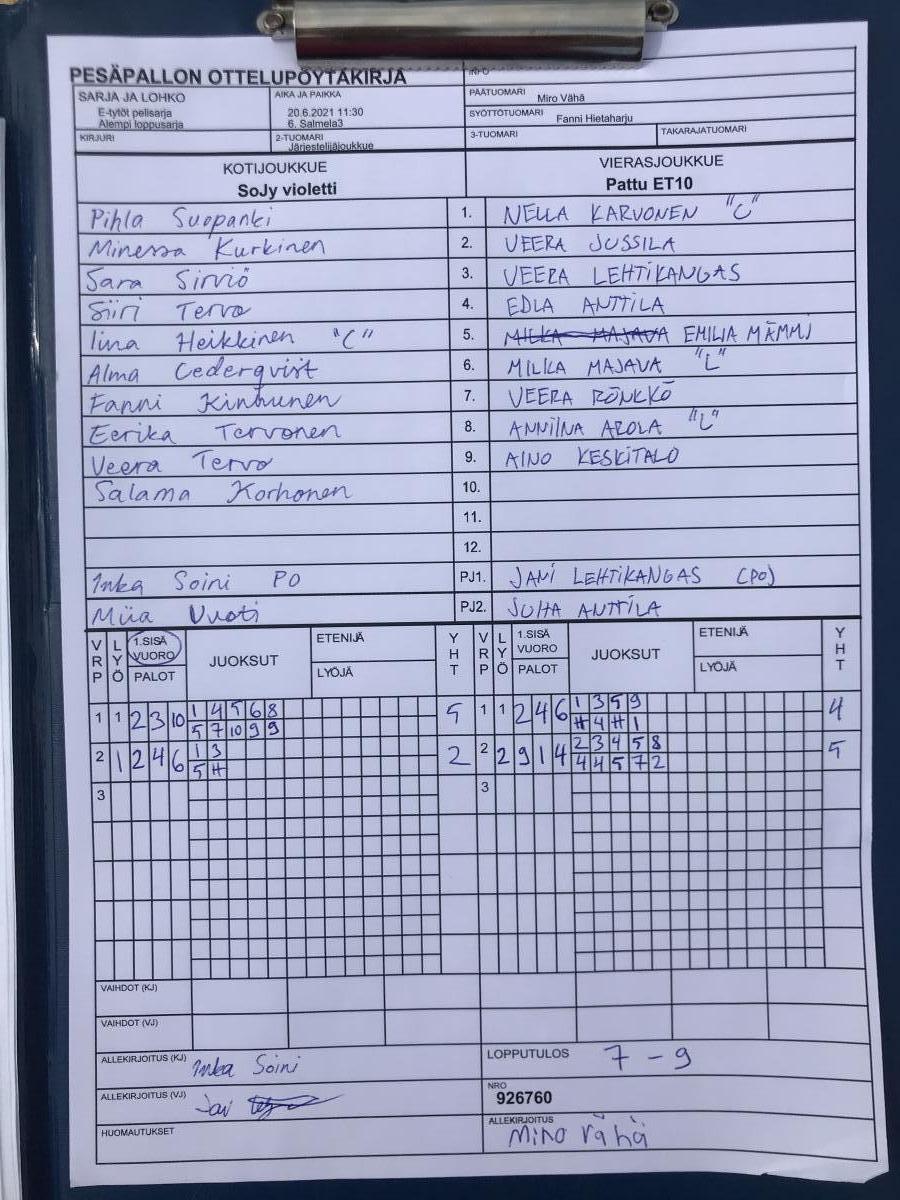 PESÄPALLON OTTELUPÖYTÄKIRJA
INFO
SARJA JA LOHKO
E-tytöt pelisarja
Alempi loppusarja
AIKA JA PAIKKA
20.6.2021 11:30
6. Salmela3
PÄÄTUOMARI Miro Vähä
SYÖTTÖTUOMARI Fanni Hietaharju
KIRJURI
2-TUOMARI
Järjestelijäjoukkue
3-TUOMARI
TAKARAJATUOMARI
KOTIJOUKKUE VIERASJOUKKUE
SoJy violetti Pattu ET10
Pihla Suopanki 1. NELLA KARVONEN "C"
Minessa Kurkinen 2. VEERA JUSSILA
Sara Sirviö 3. VEERA LEHTIKANGAS
Siiri Tervo 4. EDLA ANTTILA
Iina Heikkinen "C" 5. MILKA MAJAVA EMILIA MÄMMI
Alma Cederqvist 6. MILKA MAJAVA "L"
Fanni Kinnunen 7. VEERA RÖNKKÖ
Eerika Tervonen 8. ANNIINA AROLA "L"
Veera Tervo 9. AINO KESKITALO
Salama Korhonen 10.
11.
12.
Inka Soini PO PJ1. JANI LEHTIKANGAS (PO)
Miia Vuoti PJ2. JUHA ANTTILA
VRP LYÖ 1.SISÄ VUORO PALOT JUOKSUT ETENIJÄ LYÖJÄ YHT VRP LYÖ 1.SISÄ VUORO PALOT JUOKSUT ETENIJÄ LYÖJÄ YHT
1 1 2 3 10 1 4 5 6 8 5 1 1 2 4 6 1 3 5 9 4
5 7 10 9 9 H 4 H 1
2 1 2 4 6 1 3 2 2 2 9 1 4 2 3 4 5 8 5
5 H 4 4 5 7 2
3 3
VAIHDOT (KJ)
VAIHDOT (VJ)
ALLEKIRJOITUS (KJ) Inka Soini
LOPPUTULOS 7 - 9
ALLEKIRJOITUS (VJ)
NRO
926760
HUOMAUTUKSET
ALLEKIRJOITUS
Miro Vähä